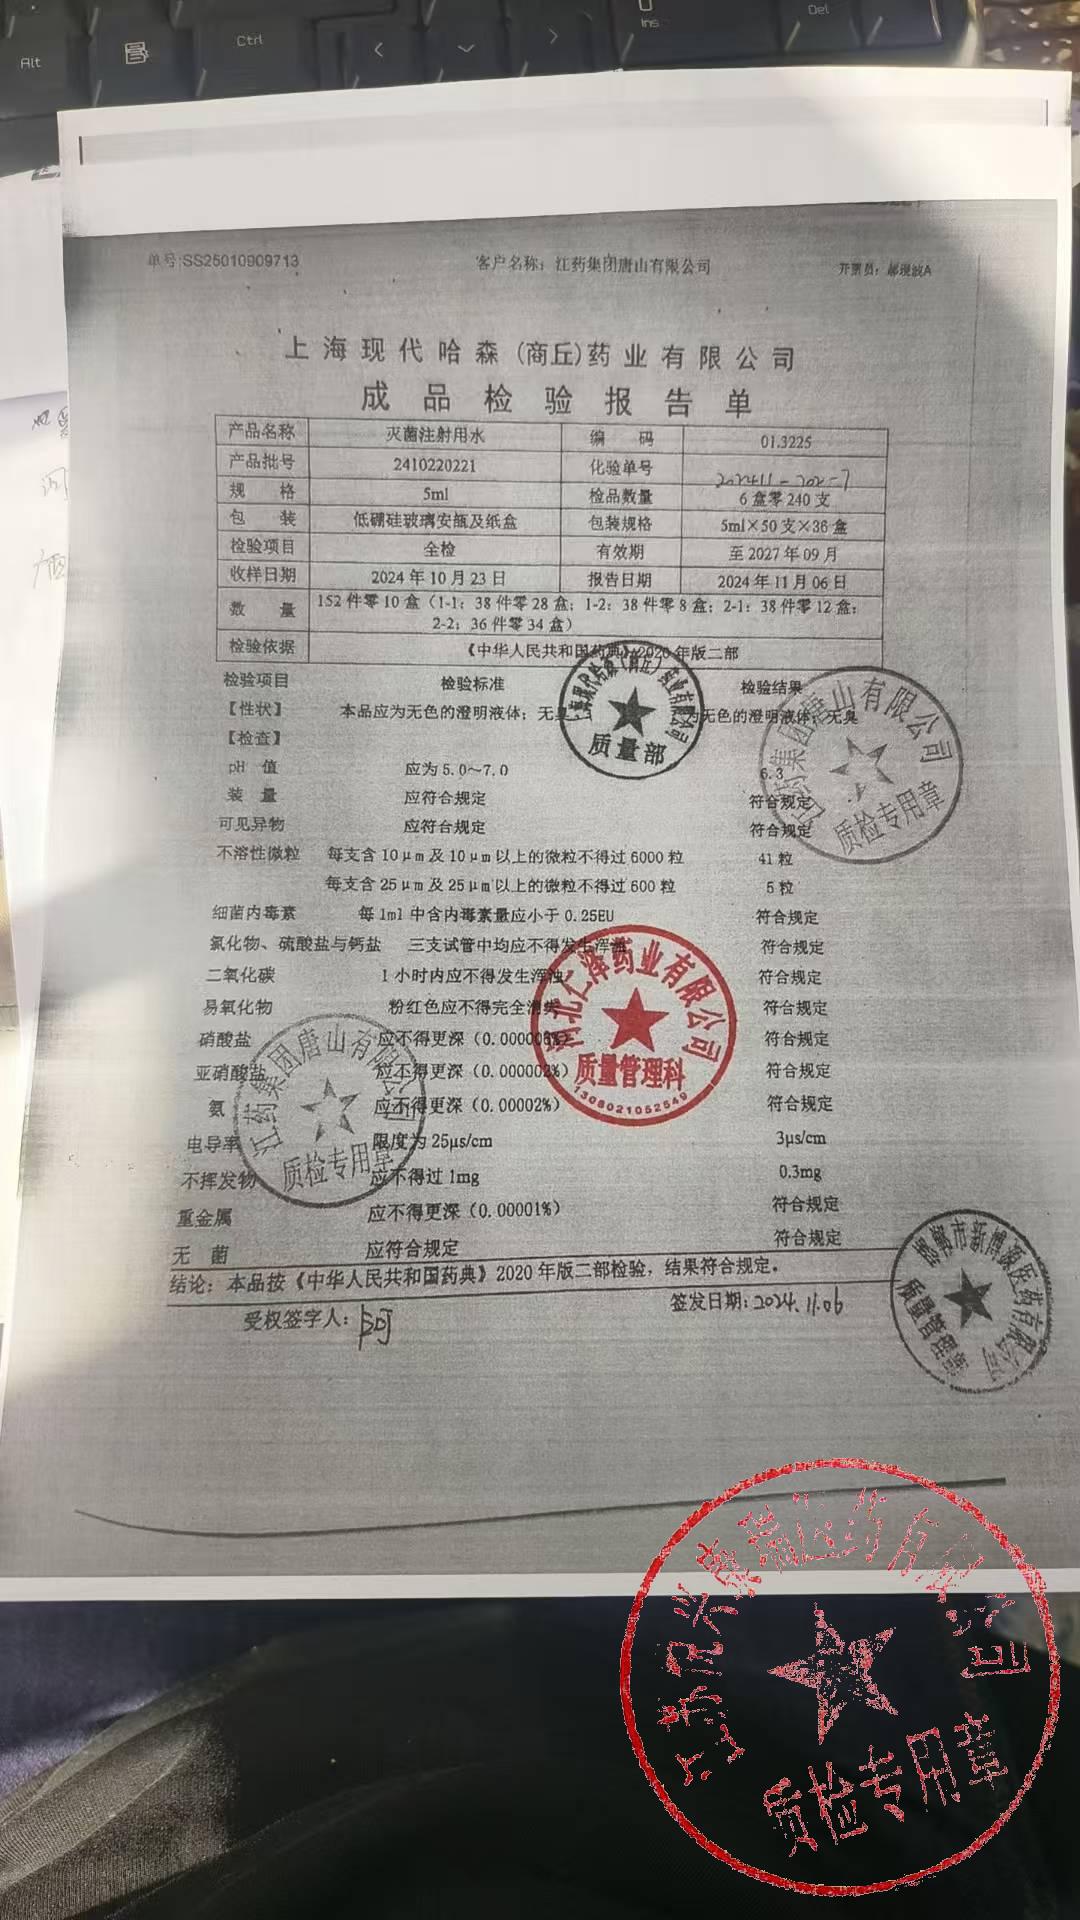 Alt
Ctrl
Ins
Del
单号:SS25010909713 客户名称：江药集团唐山有限公司 开票员：
上海现代哈森(商丘)药业有限公司
成品检验报告单
产品名称 灭菌注射用水 编 码 01.3225
产品批号 2410220221 化验单号
规 格 5ml 检品数量 6盒零240支
包 装 低硼硅玻璃安瓿及纸盒 包装规格 5ml×50支×36盒
检验项目 全检 有效期 至2027年09月
收样日期 2024年10月23日 报告日期 2024年11月06日
数 量 152件零10盒（1-1：38件零28盒；1-2：38件零8盒；2-1：38件零12盒；
2-2：36件零34盒）
检验依据 《中华人民共和国药典》2020年版二部
检验项目 检验标准 检验结果
【性状】 本品应为无色的澄明液体；无臭 为无色的澄明液体；无臭
【检查】
pH 值 应为5.0～7.0 6.3
装 量 应符合规定 符合规定
可见异物 应符合规定 符合规定
不溶性微粒 每支含10μm及10μm以上的微粒不得过6000粒 41粒
每支含25μm及25μm以上的微粒不得过600粒 5粒
细菌内毒素 每1ml中含内毒素量应小于0.25EU 符合规定
氯化物、硫酸盐与钙盐 三支试管中均应不得发生浑浊 符合规定
二氧化碳 1小时内应不得发生浑浊 符合规定
易氧化物 粉红色应不得完全消失 符合规定
硝酸盐 应不得更深（0.000006%） 符合规定
亚硝酸盐 应不得更深（0.000002%） 符合规定
氨 应不得更深（0.00002%） 符合规定
电导率 限度为25μs/cm 3μs/cm
不挥发物 应不得过1mg 0.3mg
重金属 应不得更深（0.00001%） 符合规定
无 菌 应符合规定 符合规定
结论：本品按《中华人民共和国药典》2020年版二部检验，结果符合规定。
受权签字人： 签发日期：2024.11.06
上海现代哈森（商丘）药业有限公司
质量部
江药集团唐山有限公司
质检专用章
河北仁泽药业有限公司
质量管理科
1308021052549
江药集团唐山有限公司
质检专用章
市新博源医药有限公司
质量管理部
质检专用章